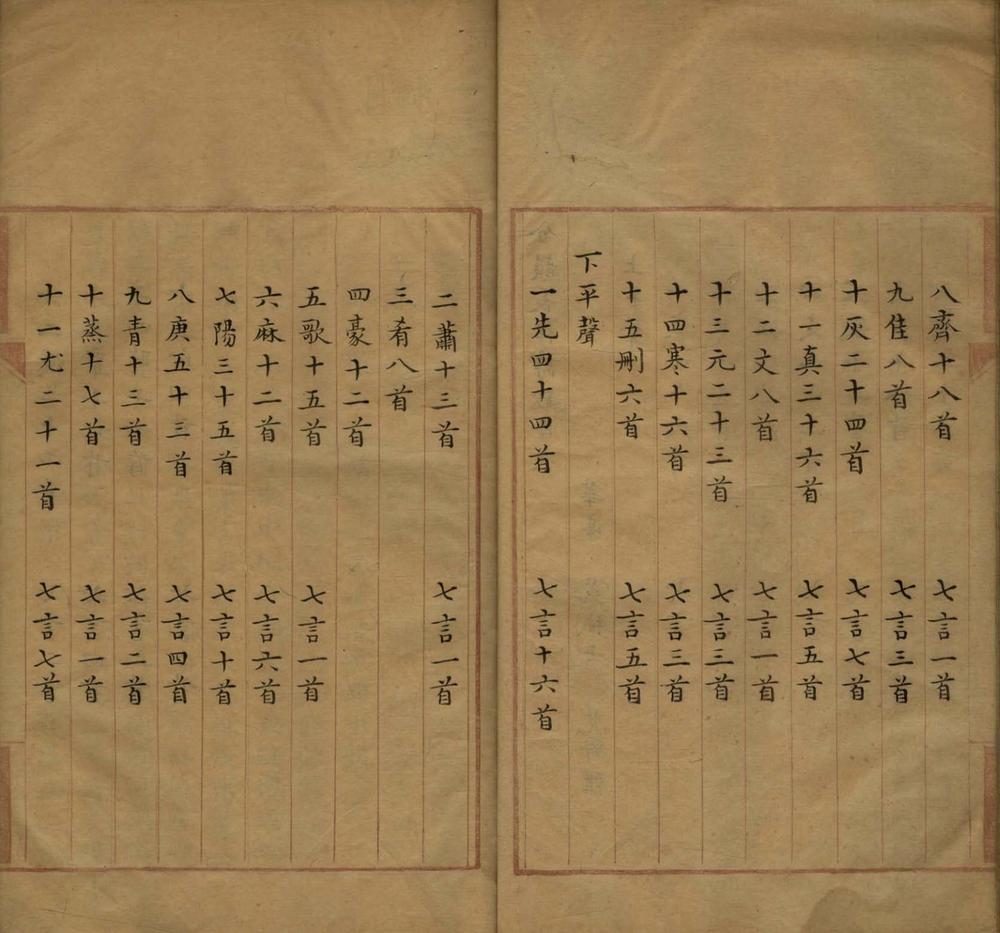 八齊十八首 七言一首
九佳八首 七言三首
十灰二十四首 七言七首
十一真三十六首 七言五首
十二文八首 七言一首
十三元二十三首 七言三首
十四寒十六首 七言三首
十五刪六首 七言五首
下平聲
一先四十四首 七言十六首
二蕭十三首 七言一首
三肴八首
四豪十二首
五歌十五首 七言一首
六麻十二首 七言六首
七陽三十五首 七言十首
八庚五十三首 七言四首
九青十三首 七言二首
十蒸十七首 七言一首
十一尤二十一首 七言七首